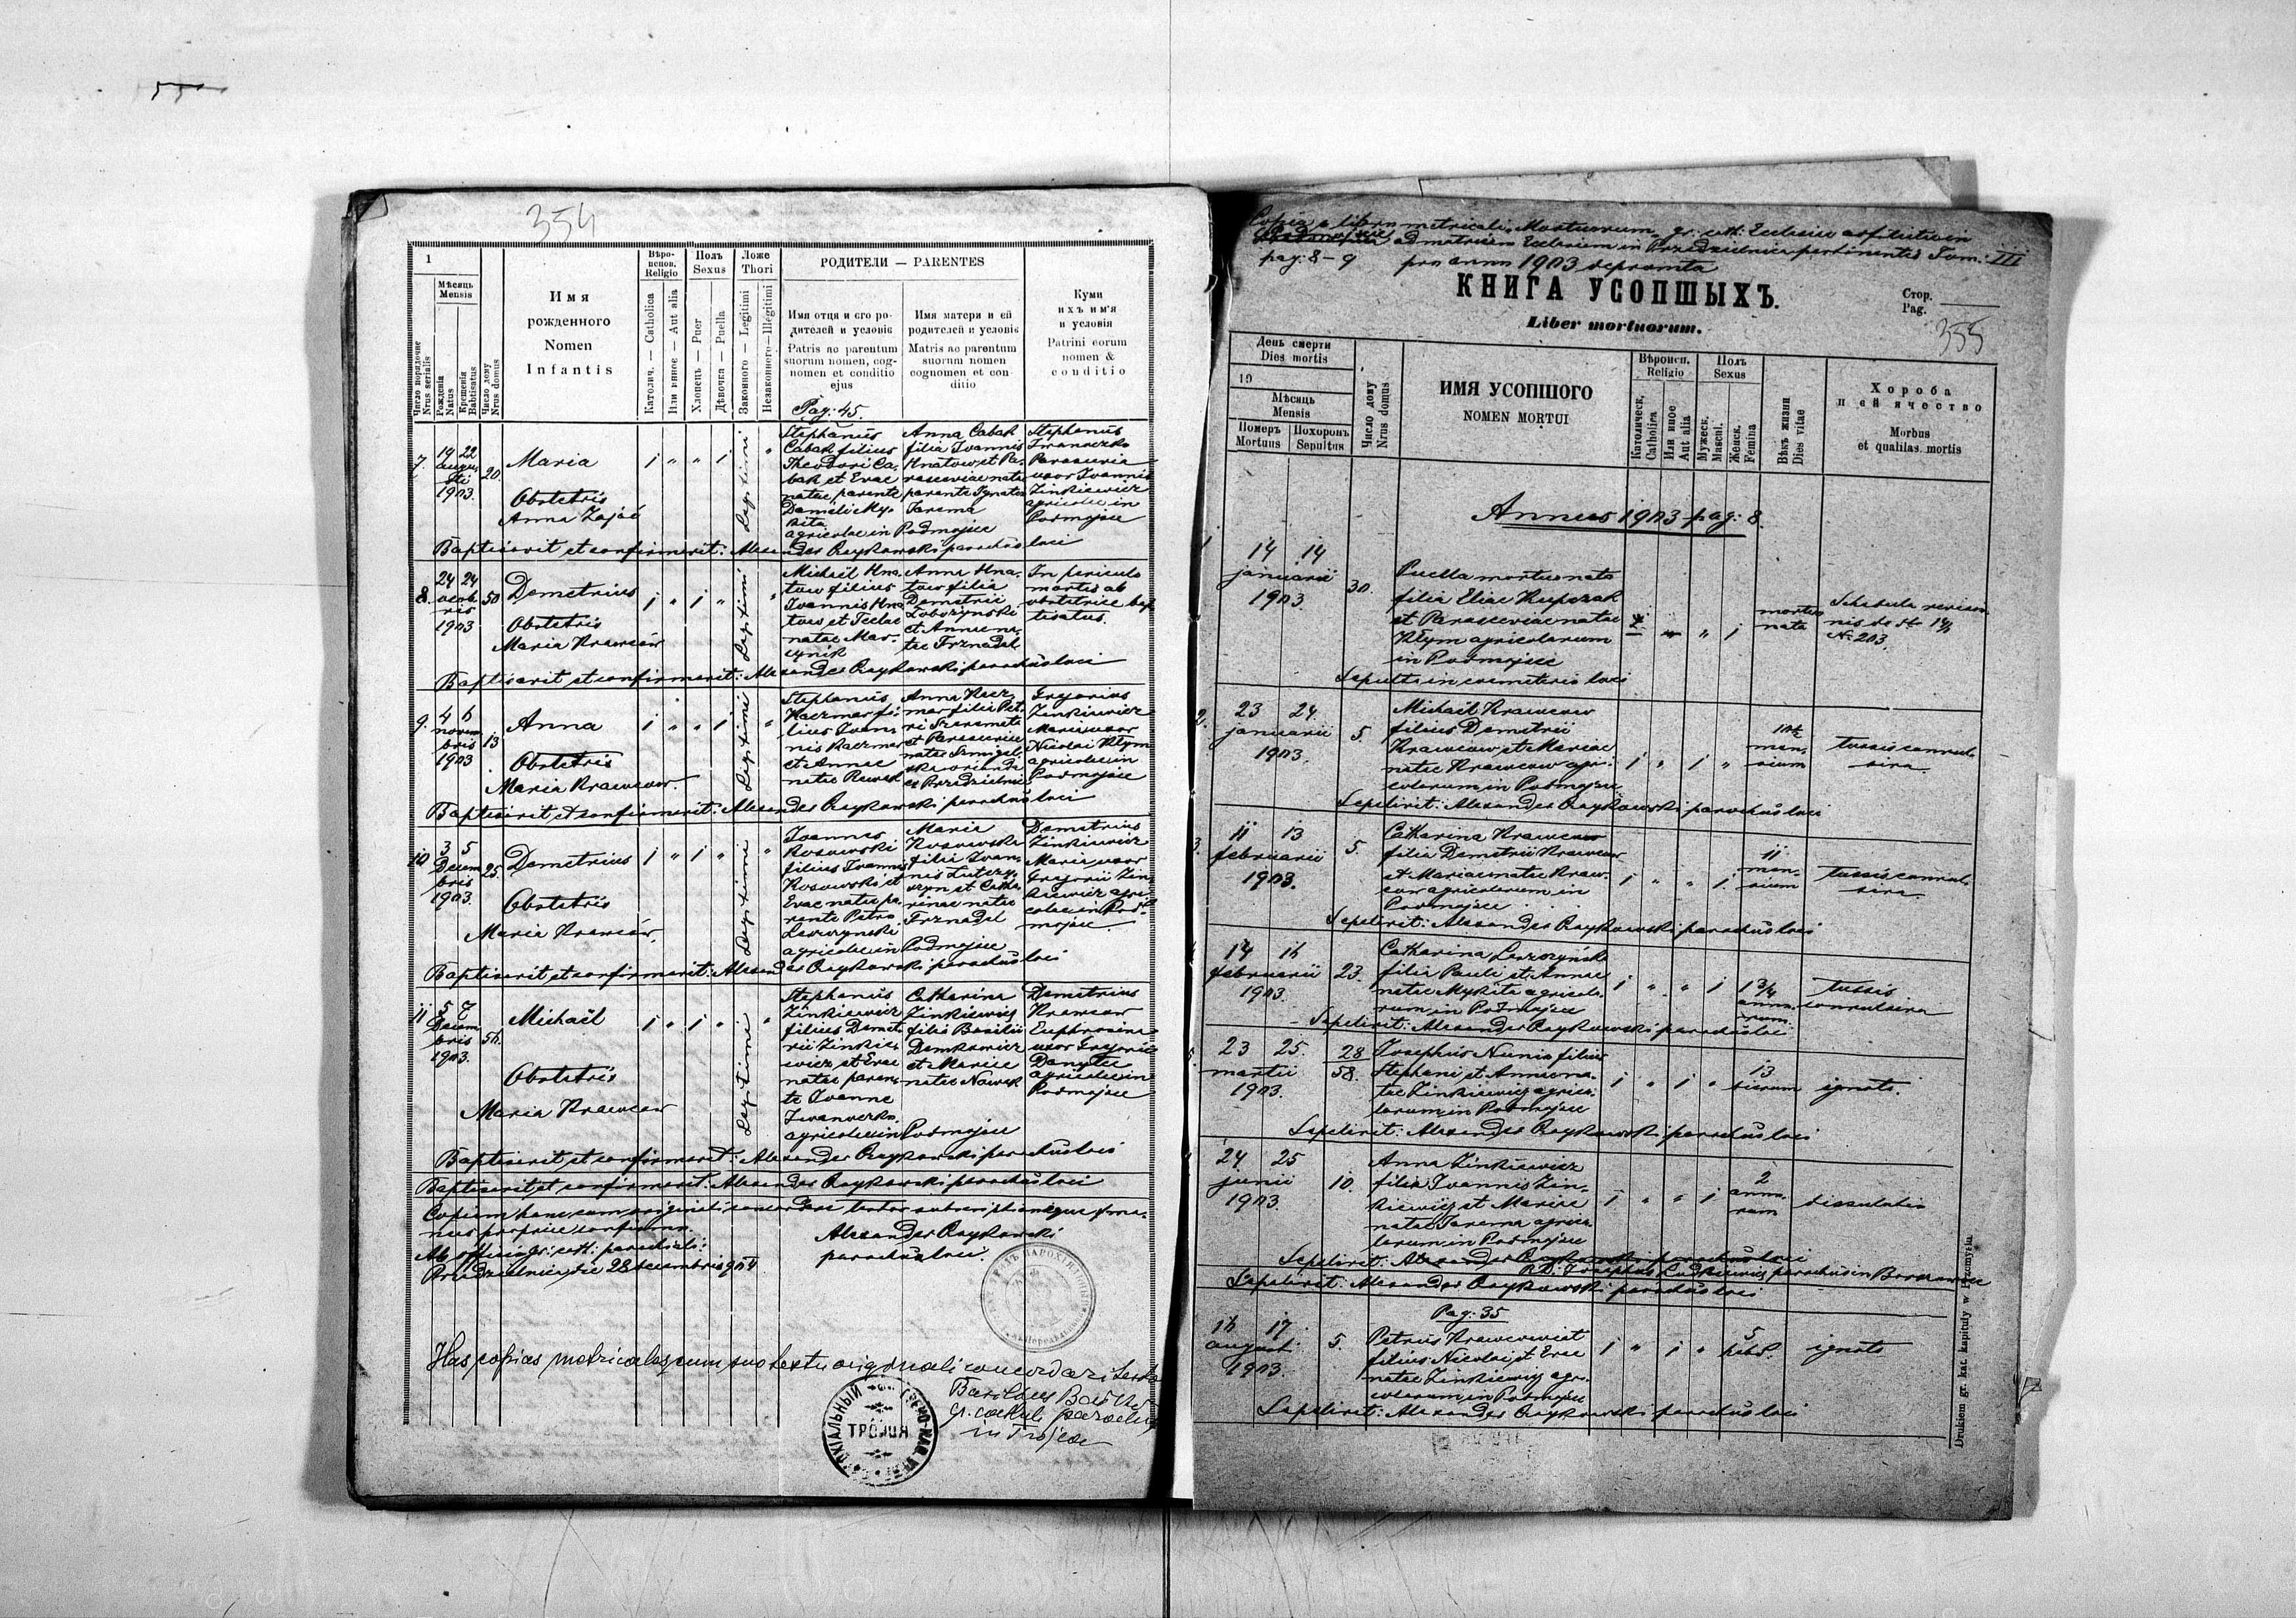 354
1
Мѣсяць
Mensis
Число порядочне
Nrus serialis
Рожденія
Natus
Крещенія
Babtisatus
Число дому
Nrus domus
Имя
рожденного
Nomen
Infantis
Вѣро-
испов.
Religio
Католич. — Catholica
Или инное — Aut alia
Полъ
Sexus
Хлопець — Puer
Дѣвочка — Puella
Ложе
Thori
Законного — Legitimi
Незаконного — Illegitimi
РОДИТЕЛИ — PARENTES
Имя отця и єго ро-
дителей и условіє
Patris ac parentum
suorum nomen, cog-
nomen et conditio
ejus
Имя матери и ей
родителей и условіє
Matris ac parentum
suorum nomen
cognomen et con-
ditio
Куми
ихъ имʼя
и условія
Patrini eorum
nomen &
conditio
Pag: 45.
7. 19 22
augu
sti
1903.
20.
Maria
Obstetrix
Anna Zając
Legitimi
Stephanus
Cabak filius
Theodori Ca-
bak et Evae
natae parente
Daniele My-
kita
agricolae in Podmojsce
Anna Cabak
filia Joannis
Hnatow et Pa-
rasceviae nata
parente Ignatio
Jarema
Stephanus
Iwaneczko
Parascevia
uxor Joannis
Zinkiewicz
agricolae in
Podmojsce
Baptisavit et confirmavit: Alexander Czajkowski parochus loci
8. 24 24
octob
ris
1903
50
Demetrius
Obstetrix
Maria Krawców
Legitimi
Michaël Hna-
tow filius
Joannis Hna
tow et Teclae
natae Mar-
cynik
Anna Hna-
tow filia
Demetrii
et Annae na-
tae Trznadel
In periculo
mortis ab
obstetrice bap
tisatus.
Baptisavit et confirmavit: Alexander Czajkowski parochus loci
9. 4 6
novem
bris
1903
13
Anna
Obstetrix
Maria Krawcow.
Legitimi
Stephanus
Kaczmar fi-
lius Joan-
nis Kaczmar
et Annae
natae
Anna Kacz
mar filia Pet-
ri
et Parasceviae
natae
Gregorius
Zinkiewicz
Maria uxor
Nicolai Klym
agricolae in
Podmojsce
Baptisavit et confirmavit: Alexander Czajkowski parochus loci
10 3 5
Decem
bris
1903.
25.
Demetrius
Obstetrix
Maria Krawców.
Legitimi
Joannes
Kosowski
filius Joannis
Kosowski et
Evae natae pa-
rente Petro
Leszczynski
agricolae in Podmojsce
Maria
Kosowska
filia Joan-
nis
et Catha-
rinae natae
Trznadel
Demetrius
Zinkiewicz
Maria uxor
Gregorii Zin-
kiewicz agri-
colae in Pod-
mojsce.
Baptisavit et confirmavit: Alexander Czajkowski parochus loci
11 5 7
Decem
bris
1903.
56.
Michaël
Obstetrix
Maria Krawców
Legitimi
Stephanus
Zinkiewicz
filius Demet-
rii Zinkie-
wicz et Evae
natae paren-
te Joanne
Iwaneczko.
agricolae in Podmojsce
Catharina
Zinkiewicz
filia Basilii
Demkowicz
et Mariae
natae Nowak
Demetrius
Krawcow
Euphrosina
uxor Gregorii
agricolae in
Podmojsce
Baptisavit et confirmavit: Alexander Czajkowski parochus loci
Baptisavit et confirmavit: Alexander Czajkowski parochus loci
Copiam hanc cum originali concordare testor subscriptioneque ma-
nus propriae confirmo.
Ab officio gr: cath: parochiali:
Przedzielnica die 28 decembris 904
Alexander Czajkowski
parochus loci.
Has copias metricales cum suo textu originali concordari testor
gr. cathol. parochus
in Trojca
ТРОЙЦЯ
Copia e libro metricali Mortuorum gr. cath. Ecclesiae ad filialis in
Podmojsce ad matricem Ecclesiam in Przedzielnica pertinentis Tom: III
pag: 8-9 pro anno 1903 deprompta
КНИГА УСОПШЫХЪ.
Liber mortuorum.
Стор.
Pag.
355
День смерти
Dies mortis
19
Мѣсяць
Mensis
Померъ
Mortuus
Похоронъ
Sepultus
Число дому
Nrus domus
ИМЯ УСОПШОГО
NOMEN MORTUI
Вѣроисп.
Religio
Католическ.
Catholica
Или иное
Aut alia
Полъ
Sexus
Мужеск.
Mascul.
Женск.
Femina
Вѣкъ жизни
Dies vitae
Хороба
и єй ячество
Morbus
et qualitas mortis
Annus 1903 pag: 8.
1 14 14
januarii
1903.
30.
Puella mortuo nata
filia Eliae Kupczak
et Parasceviae natae
Klym agricolarum
in Podmojsce
mortuo
nata
Schedula revisio-
nis
№ 203.
Sepulta in coemeterio loci
2. 23 24.
januarii
1903.
5.
Michaël Krawcow
filius Demetrii
Krawcow et Mariae
natae Krawcow agri-
colarum in Podmojsce
men-
sium
tussis convul-
siva.
Sepelivit: Alexander Czajkowski parochus loci
3. 11 13
februarii
1903.
5.
Catharina Krawcow
filia Demetrii Krawcow
et Mariae natae Kraw-
cow agricolarum in
Podmojsce
11
men-
sium
tussis convul-
siva.
Sepelivit: Alexander Czajkowski parochus loci
14 16
februarii
1903.
23.
Catharina Leszczyńska
filia Pauli et Annae
natae Mykita agricola-
rum in Podmojsce
1 3/4
anno-
rum.
tussis
convulsiva
Sepelivit: Alexander Czajkowski parochus loci
23 25.
martii
1903.
28
58.
Josephus Nunia filius
Stephani et Annae na-
tae Zinkiewicz agrico-
larum in Podmojsce
13
dierum
ignota.
Sepelivit: Alexander Czajkowski parochus loci
24 25
junii
1903.
10.
Anna Zinkiewicz
filia Joannis Zin-
kiewicz et Mariae
natae Jarema agrico-
larum in Podmojsce
2
anno-
rum
Sepelivit: Alexander Czajkowski parochus loci
R.D. Josephus Ludkiewicz parochus in
Sepelivit: Alexander Czajkowski parochus loci
Pag: 35
16 17
august.
1903.
5.
Petrus
filius Nicolai et Evae
natae Zinkiewicz agri-
colarum in Podmojsce
5
hebd.
ignota
Sepelivit: Alexander Czajkowski parochus loci
Drukiem gr. kat. kapituły w Przemyślu.